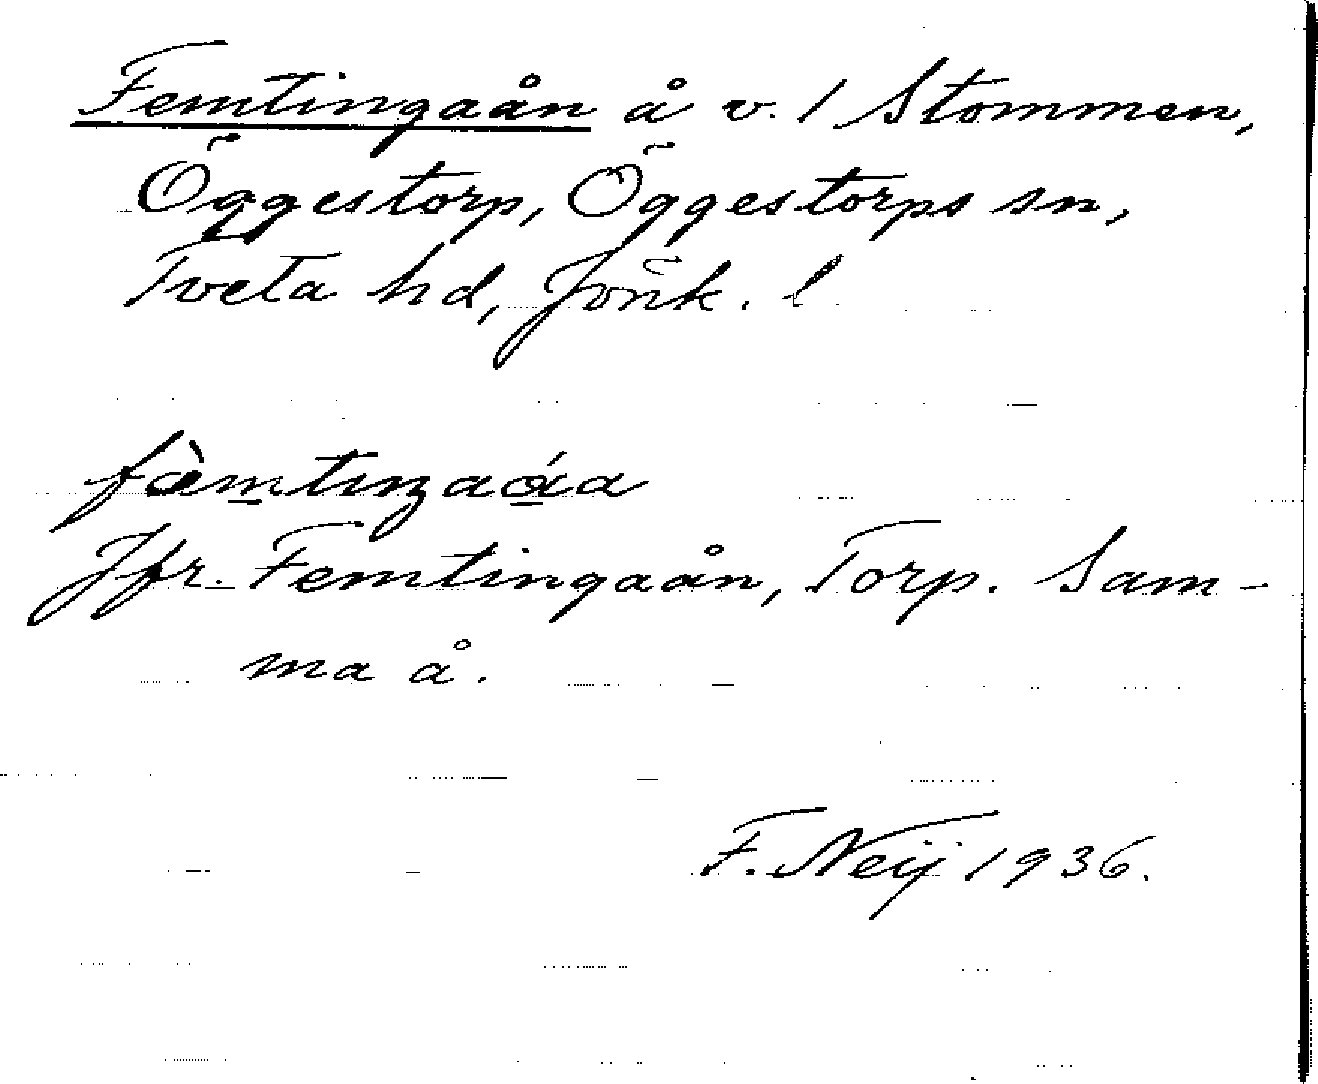 Femtingaån å v. / Stommen,
Öggestorp, Öggestorps sn,
Tveta hd, Jönk. l
Jfr. Femtingaån, Torp. Sam-
ma å.
F. Neij 1936.